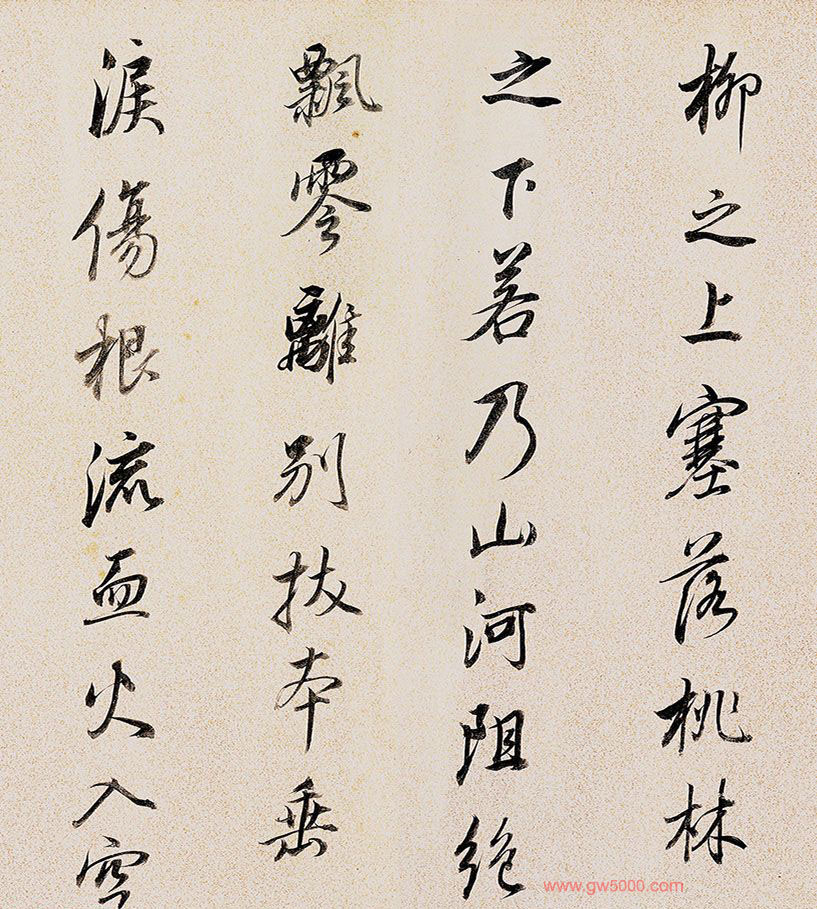 柳之上塞落桃林
之下若乃山河阻絶
飄零離別拔本垂
淚傷根流血火入空
www.gw5000.com